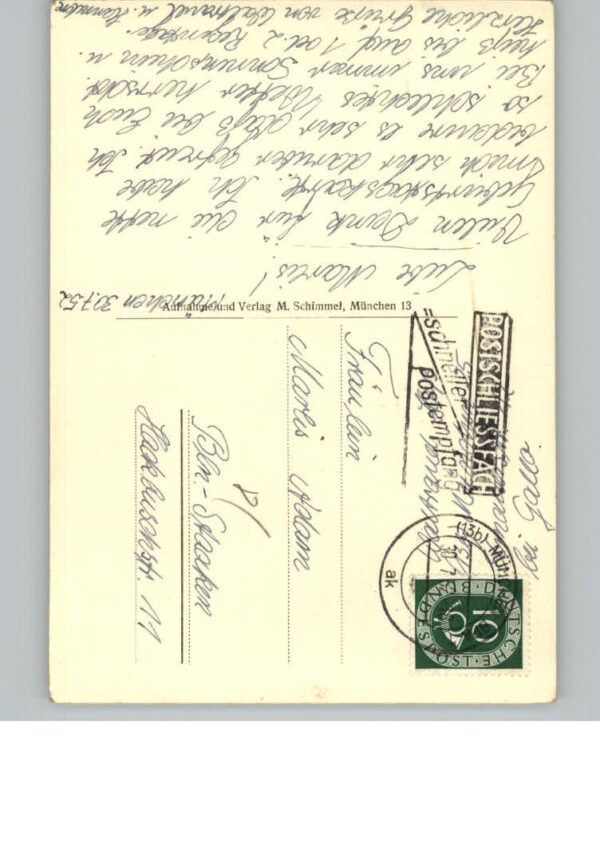 München 30.7.52
Liebe Marlis!
Vielen Dank für die nette
Geburtstagskarte. Ich habe
mich sehr darüber gefreut. Ich
bedaure es sehr daß bei Euch
so schlechtes Wetter herrscht.
Bei uns immer Sonnenschein u.
heiß bis auf 1 od. 2 Regentage.
Herzliche Grüße von Waltraud u.
Aufnahme und Verlag M. Schimmel, München 13
POSTSCHLIESSFACH
=schneller
postempfang
(13b) MÜN
ak
DEUTSCHE BUNDESPOST
10
Fräulein
Marlis Adam
Bln-Staaken
Hackbuschstr. 11
bei